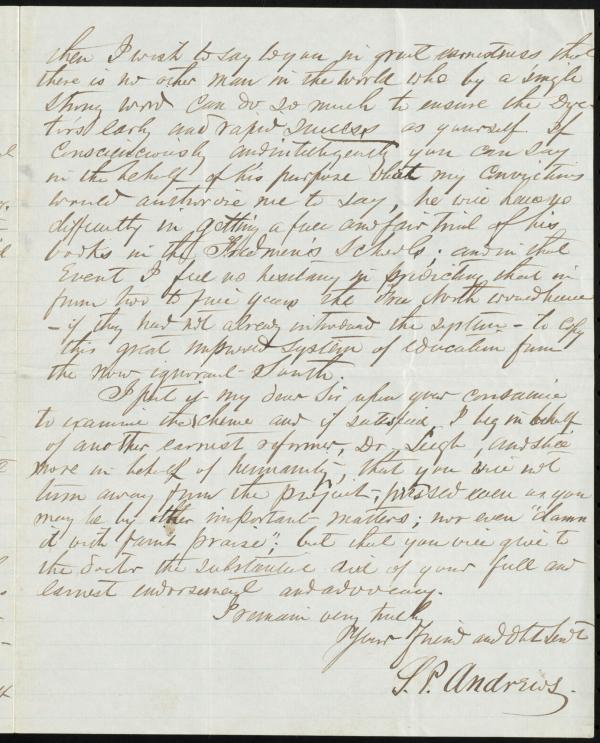 then I wish to say to you in great earnestness that
there is no other man in the world who by a single
strong word can do so much to ensure the Doc-
tor's early and rapid success as yourself. If
Conscienciously and intelligently you can say
in the behalf of his purpose what my convictions
would authorize me to say, he will have no
difficulty in getting a full and fair trial of his
books in the Freedmen's Schools; and in that
Event I feel no hesitancy in predicting that in
from two to five years the Free North would have
- if they had not already introduced the system - to copy
this great improved system of education from
the now ignorant South.
I put it my dear Sir upon your conscience
to examine the scheme and if satisfied, I beg in behalf
of another earnest reformer, Dr. Leigh, and still
more in behalf of humanity, that you will not
turn away from the project, pressed even as you
may be by other important matters; nor even "damn
it with faint praise"; but that you will give to
the doctor the substantial aid of your full and
earnest endorsement and advocacy.
I remain very truly
Your friend and Obt Servt
S. P. Andrews.